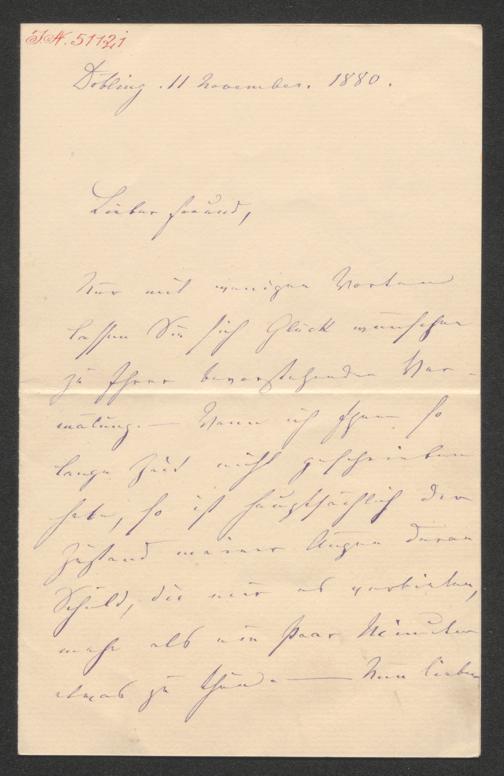 I.N. 51121
Döbling. 11 November. 1880.
Lieber Freund,
Nur mit wenigen Worten
lassen Sie sich Glück wünschen
zu Ihrer bevorstehenden Ver-
mälung. — Wenn ich Ihnen so
lange Zeit nicht geschrieben
habe, so ist hauptsächlich der
Zustand meiner Augen daran
Schuld, die mir es verbieten,
mehr als ein paar Minuten
etwas zu thun. — Nun lieber